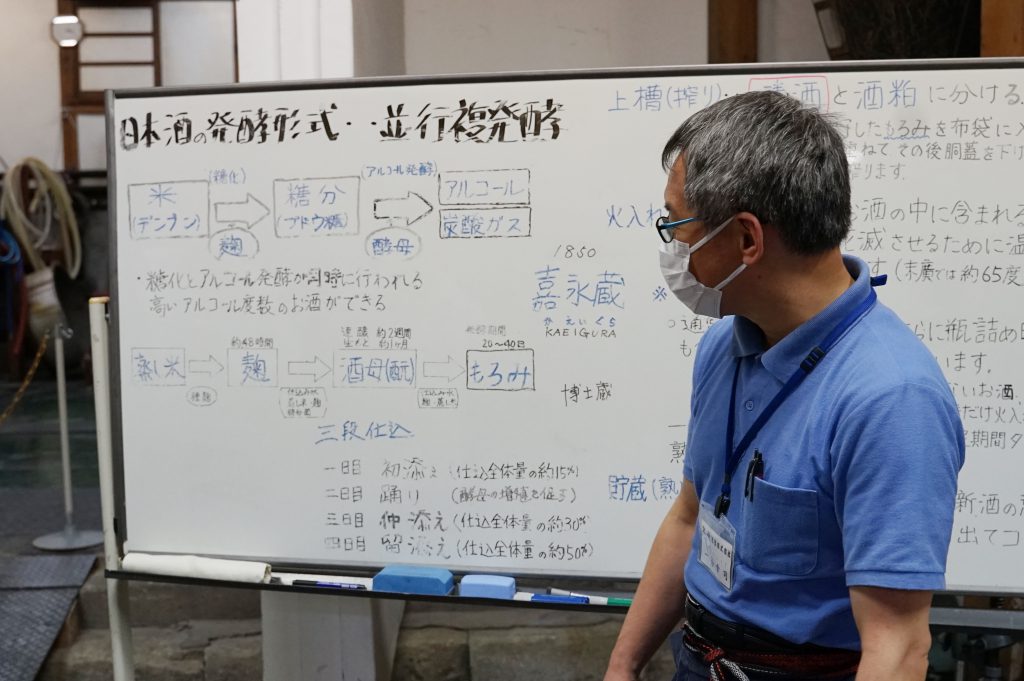 日本酒の発酵形式‥並行複発酵
米
(デンプン)
(糖化)
麹
糖分
(ブドウ糖)
(アルコール発酵)
酒母
アルコール
炭酸ガス
・糖化とアルコール発酵が同時に行われる
高いアルコール度数のお酒ができる
蒸し米
約48時間
麹
速醸 約2週間
生もと 約1ヶ月
酒母(酛)
発酵期間
20〜40日
もろみ
三段仕込
一日目 初添え (仕込全体量の約15%)
二日目 踊り (酵母の増殖を促す)
三日目 仲添え (仕込全体量の約30%)
四日目 留添え (仕込全体量の約50%)
1850
嘉永蔵
かえいくら
KAEIGURA
博士蔵
上槽(搾り)‥清酒と酒粕に分ける
したもろみを布袋に入
ねて、その後胴蓋を下げ
搾ります。
火入れ
お酒の中に含まれる
滅させるために温
す (末廣では約65度
※
らに瓶詰め
います。
ないお酒
だけ火入
期間タ
貯蔵(熟
新酒の
出てコ